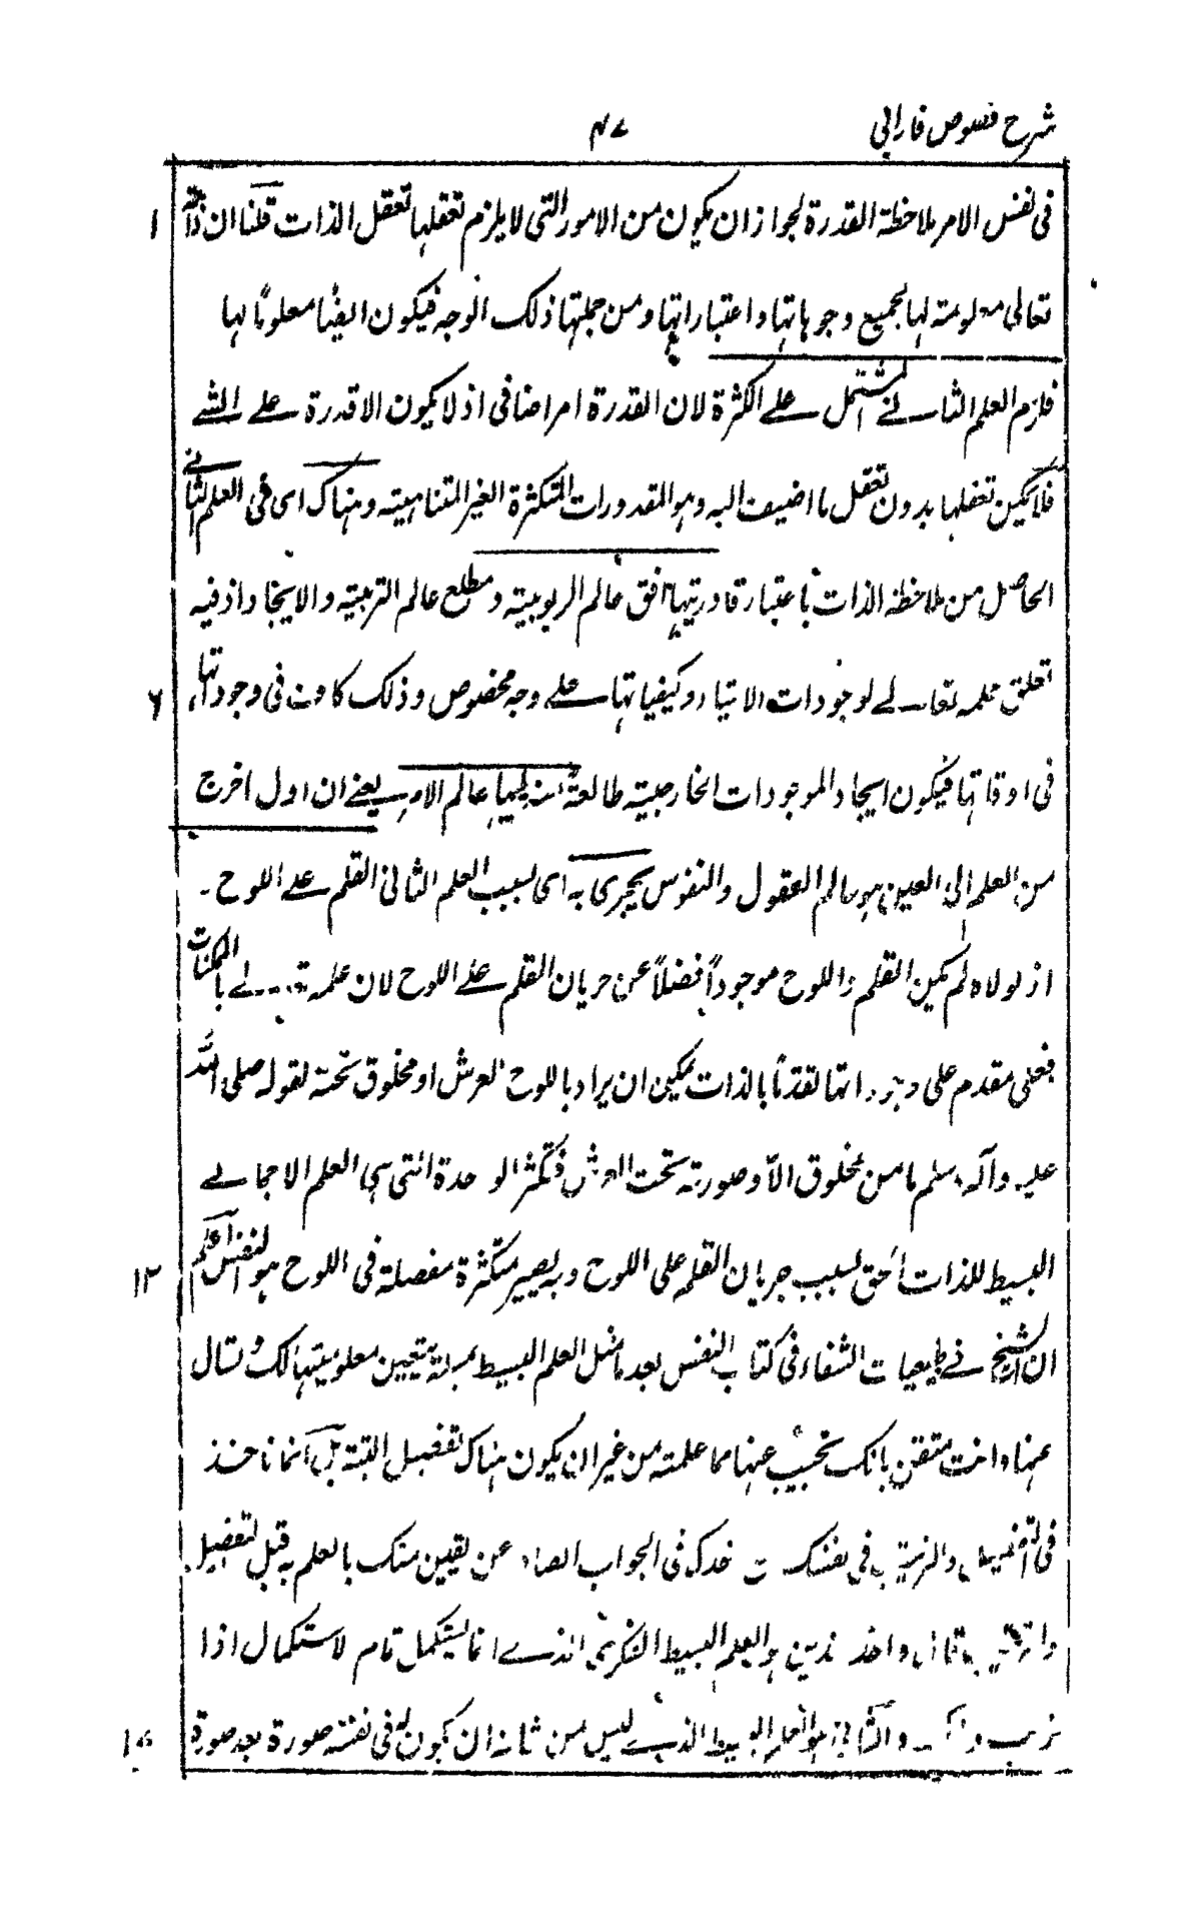 شرح فصوص فارابی
۴۷
فی نفس الامر ملاحظة القدرة لجواز ان یکون من الامور التی لا یلزم تعقلها تعقل الذات قلنا ان ذاته
۱
تعالی معلومته لها بجمیع وجوهاتها واعتباراتها ومن جملتها ذلک الوجه فیکون ایضًا معلومًا لها
فلزم العلم الثانے المشتمل علے الکثرة لان القدرة امر اضافی اذ لا یکون الا قدرة علے الشے
فلا یمکن تعقلها بدون تعقل ما اضیف الیه وهو المقدورات المتکثرة الغیر المتناهیته وهناک ای فی العلم الثانے
الحاصل من ملاحظة الذات باعتبار قادریتها افق عالم الربوبیته ومطلع عالم التربیته والایجاد اذ فیه
تعلق علمه تعالے لوجودات الاشیاء وکیفیاتها علے وجه مخصوص وذلک کاف فی وجوداتها
۶
فی اوقاتها فیکون ایجاد الموجودات الخارجیته طالعة منه یلیها عالم الامر یعنے ان اول اخرج
من العلم الی العین هو عالم العقول والنفوس یجری به ای بسبب العلم الثانی القلم علے اللوح
اذ لولاه لم یکن القلم واللوح موجوداً فضلاً عن جریان القلم علے اللوح لان علمه تعالے بالممکنات
فعلی مقدم علی وجوداتها تقدمًا بالذات یمکن ان یراد باللوح العرش او مخلوق تحته لقوله صلی الله
علیه وآله وسلم ما من مخلوق الا وصورته تحت العرش فتکثر الوحدة التی هی العلم الاجمالے
البسیط للذات الحق بسبب جریان القلم علی اللوح وبه یصیر متکثرة مفصلة فی اللوح هو النفس اعلم
۱۲
ان الشیخ فے طبیعیات الشفاء فی کتاب النفس بعد ما مثل العلم البسیط بمسئلة یتعین معلومیتها لک تسال
عنها وانت متقن بانک تجیب عنها مما علمته من غیر ان یکون هناک تفصیل البتة بل انما تاخذ
فی التفصیل والترتیب فی نفسک خدک فی الجواب الصادر عن یقین منک بالعلم به قبل التفصیل
واخذ هو العلم البسیط الفکری الذے انما یستکمل تمام الاستکمال اذا
والثانی هو العلم البسیط الذے لیس من شانه ان یکون له فی نفسه صورة بعد صورة